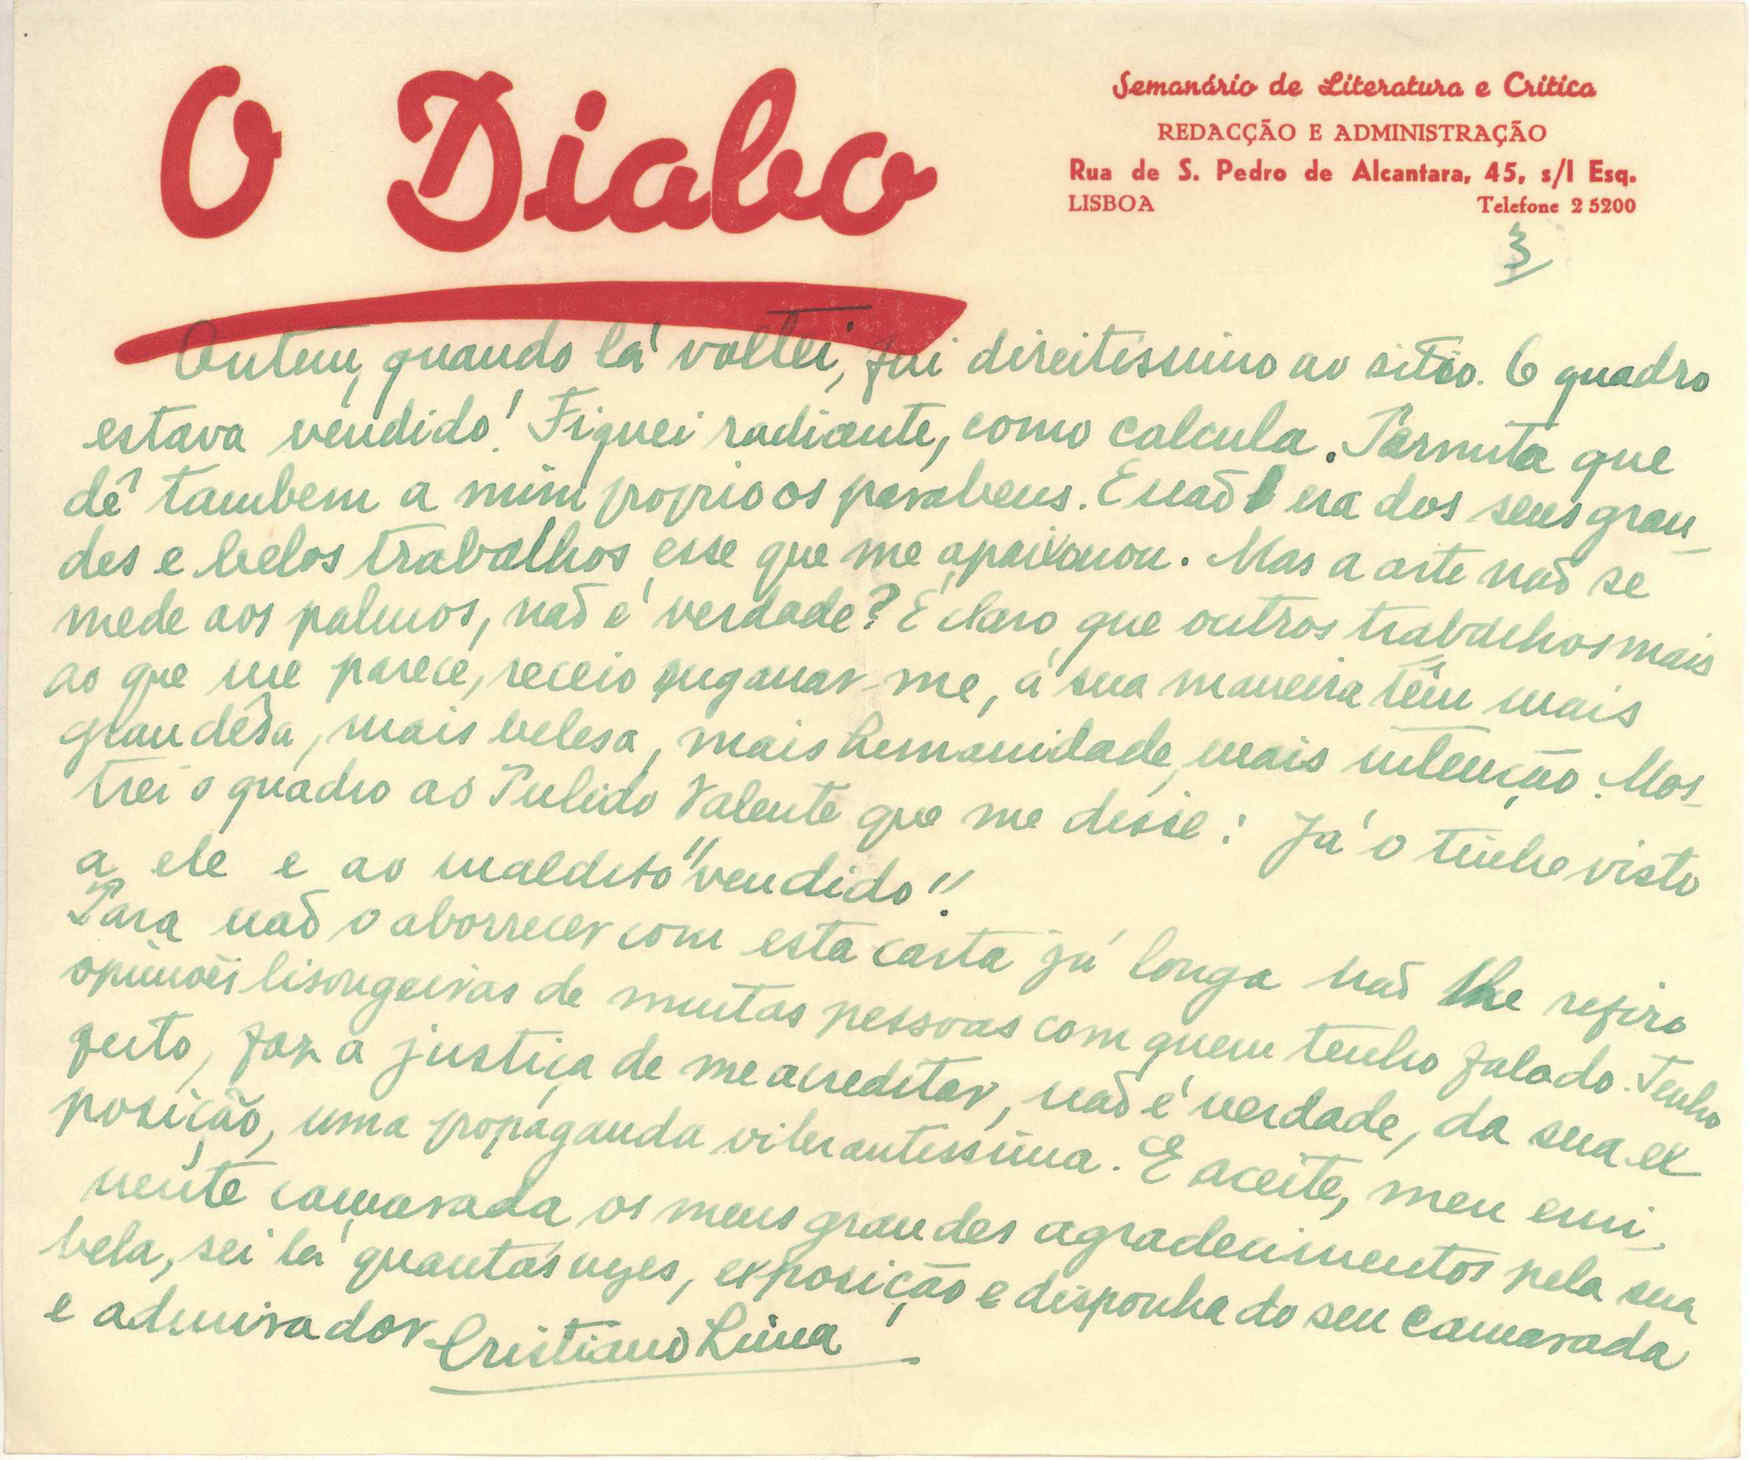 O Diabo
Semanário de Literatura e Crítica
REDACÇÃO E ADMINISTRAÇÃO
Rua de S. Pedro de Alcantara, 45, s/l Esq.
LISBOA Telefone 2 5200
3
Ontem, quando lá voltei, fui direitissimo ao sitio. O quadro
estava vendido! Fiquei radiante, como calcula. Permita que
dê tambem a mim proprio os parabens. E não era dos seus gran-
des e belos trabalhos esse que me apaixonou. Mas a arte não se
mede aos palmos, não é verdade? É claro que outros trabalhos mais
ao que me parece, receio enganar-me, á sua maneira têm mais
grandêsa, mais belesa, mais humanidade, mais intenção. Mos-
trei o quadro ao Pulido Valente que me disse: Já o tinha visto
a ele e ao maldito "vendido"!
Para não o aborrecer com esta carta já longa não lhe refiro
opiniões lisongeiras de muitas pessoas com quem tenho falado. Tenho
feito, faz a justiça de me acreditar, não é verdade, da sua ex
posição, uma propaganda vibrantissima. E aceite, meu emi-
nente camarada os meus grandes agradecimentos pela sua
bela, sei lá quantas vezes, exposição e disponha do seu camarada
e admirador Cristiano Lima